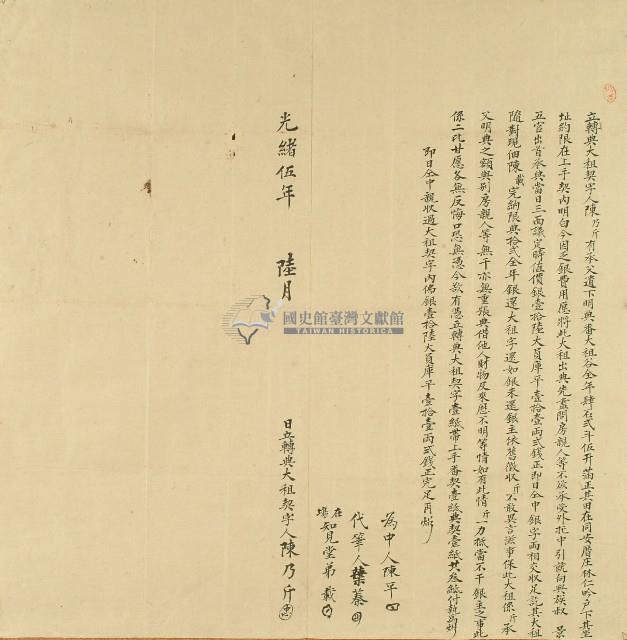 立轉典大租契字人陳乃斤有承父遺下明典番大租谷全年肆石弍斗伍升滿正其田在同安厝庄休仁吟戶下其坐
址約限在上手契内明白今因乏銀費用愿將此大租出典先盡問房親人等不欲承受外托中引就向與族叔 景
五官出首承典當日三面議定時值價銀壹拾陸大員庫平壹拾壹兩弍錢正即日仝中銀字兩相交收足訖其大租
隨對現佃陳載完納限典拾弍全年銀還大租字還如銀未還銀主依舊徵收斤不敢異言滋事保此大租係斤承
父明典之額與別房親人等無干亦無重張典借他人財物及來歷不明等情如有此情斤一力抵當不干銀主之事此
係二比甘愿各無反悔口恐無憑今欲有憑立轉典大租契字壹紙帶上手番契壹紙典契壹紙共叁紙付執為炤
即日仝中親收過大租契字内佛銀壹拾陸大員庫平壹拾壹兩弍錢正完足再炤
為中人陳早
代筆人葉蓁
在場知見堂弟載
光緒伍年 陸月 日立轉典大租契字人陳乃斤
國史館臺灣文獻館
TAIWAN HISTORICA